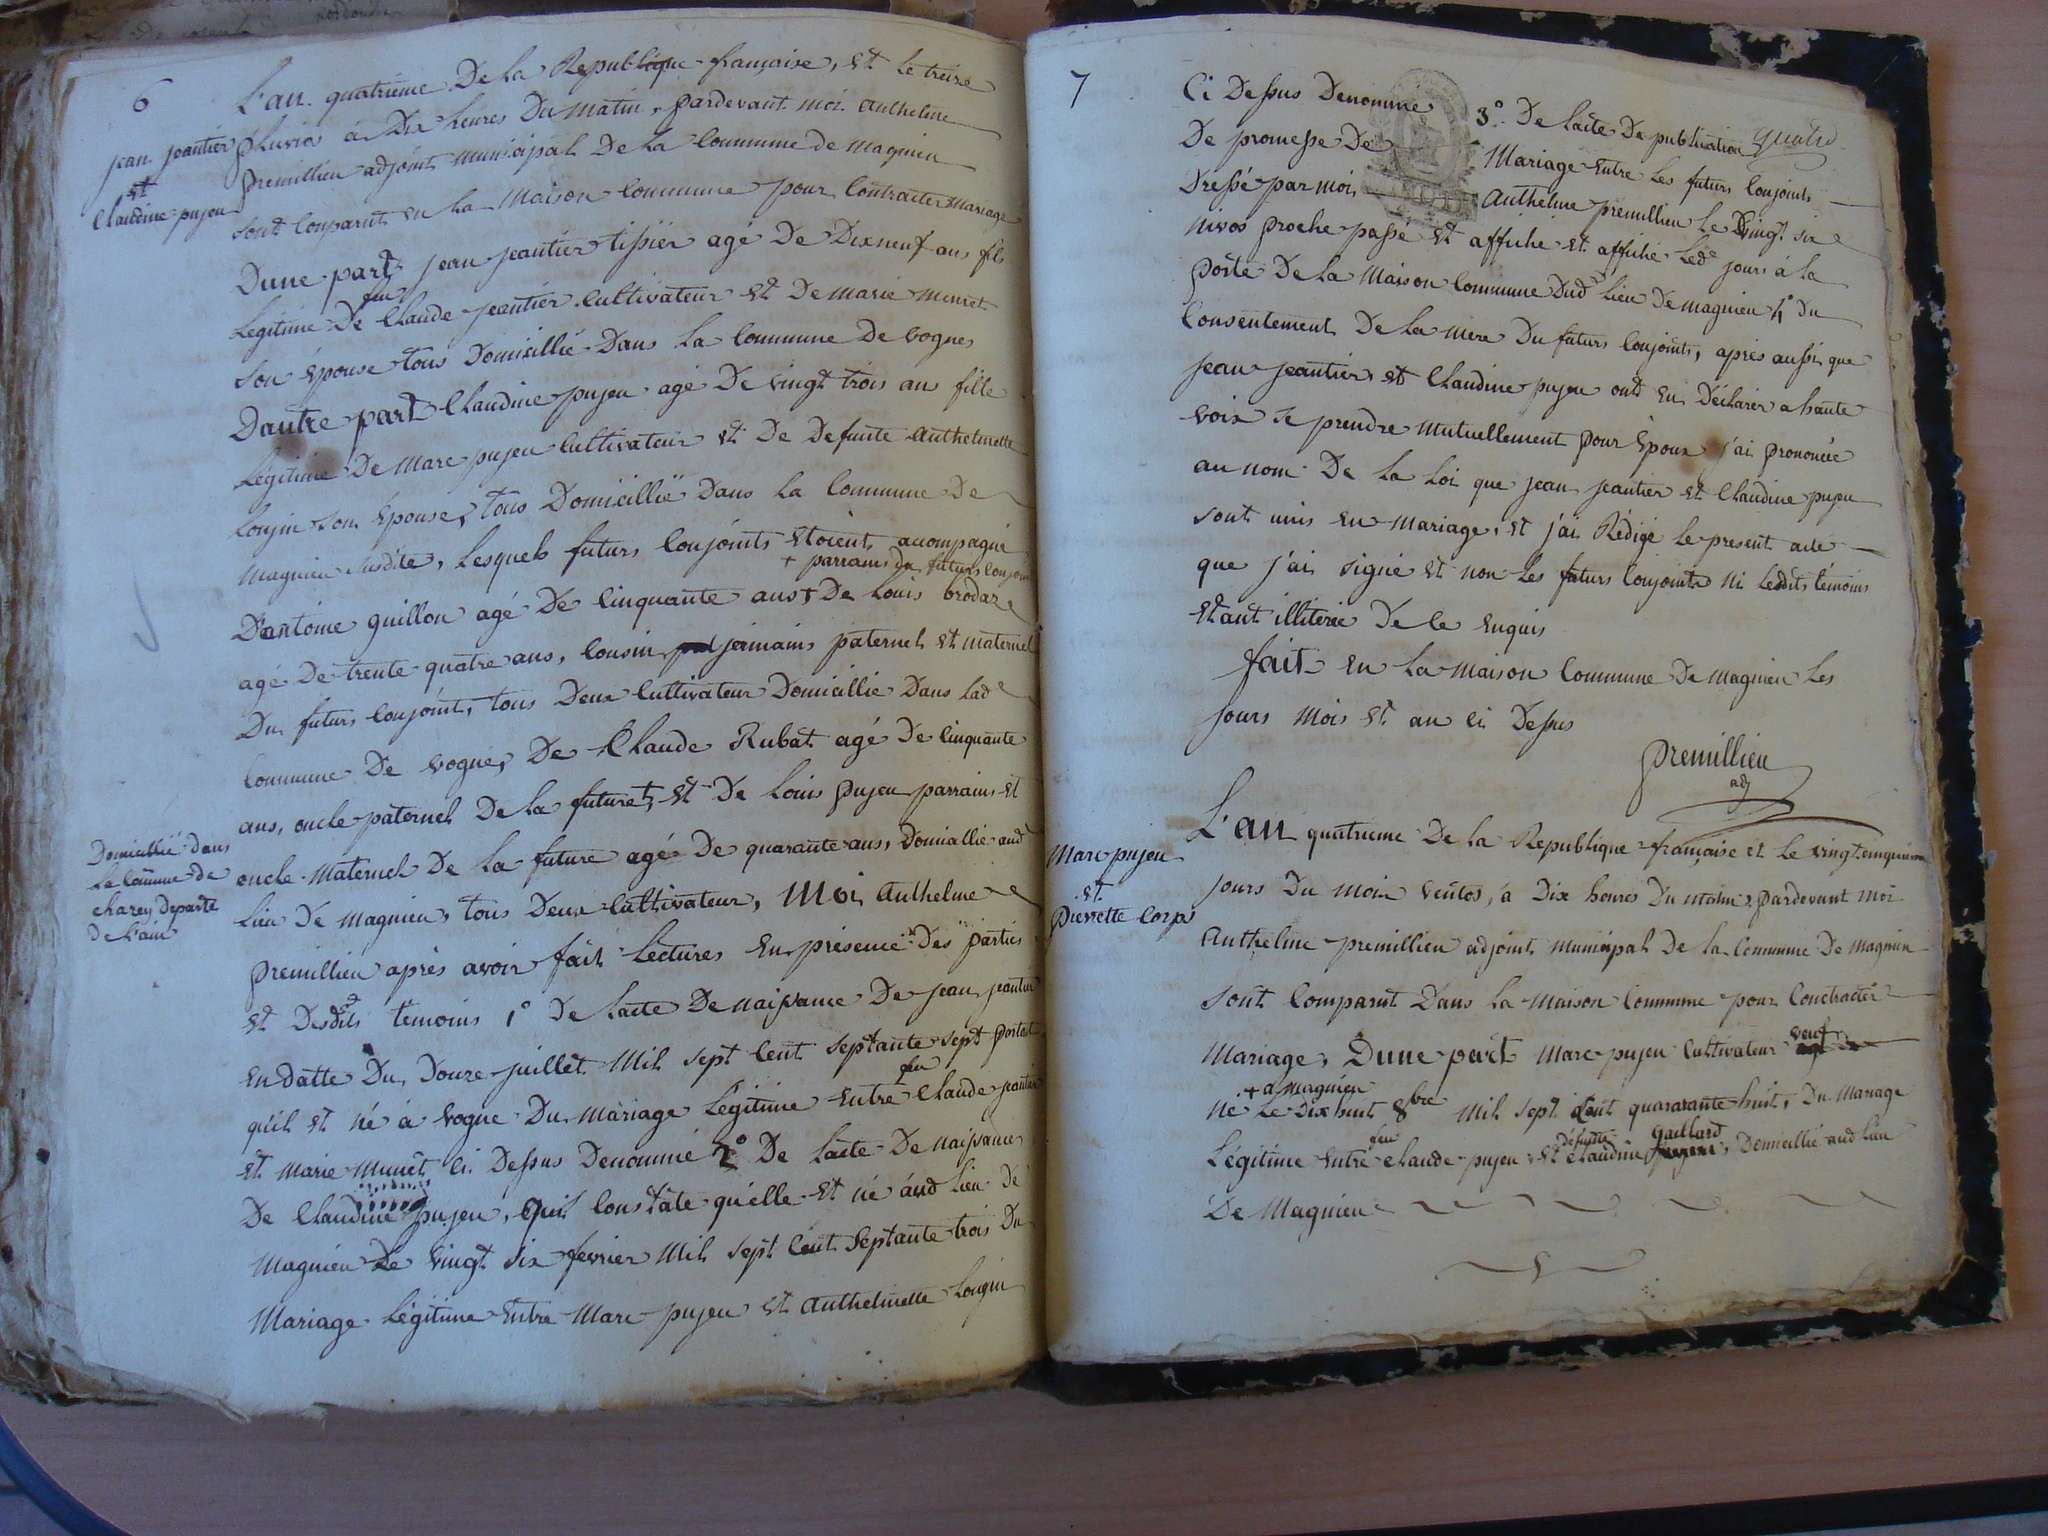 6
L'an quatrieme De la Republique française, et le treize
pluviôs à Dix heures Du matin, pardevant moi anthelme
premillieu adjoint municipal De la Commune de magnieu
sont Comparut en la Maison Commune pour Contracter mariage
jean jeantier
et
Claudine pujeu
Dune part jean jeantier tissier agé De Dixneuf ans fils
feu
Legitime De Claude jeantier Cultivateur et De marie munet
Son épouse tous Domicillié Dans la Commune De vognes
Dautre part Claudine pujeu agé De vingt trois ans fille
Légitime De Marc pujeu Cultivateur et De Defunte anthelmette
Longin son épouse, tous Domicillié Dans la Commune De
magnieu susdite, Lesquels futurs Conjoints étoient acompagné
+ parrains du futurs conjoint
D'antoine guillon agé De Cinquante ans + De Louis brodaz
agé De trente quatre ans, Cousin jermains paternel et maternel
Du futurs Conjoint, tous Deux Cultivateur Domicillié Dans lade
Commune De vogne, De Claude Rubat agé De Cinquante
ans, oncle paternel De la future +, et De Louis pujeu parrains et
oncle Maternel De la future agé De quarante ans, Domicillié aud
Domicillié dans
la Comune de
charey departe
de l'ain
Lieu De magnieu, tous Deux Cultivateur, Moi Anthelme
premillieu après avoir fait Lectures En présence Des parties
et Desdits temoins 1° De L'acte De naissance De jean jeantier
En datte Du Douze juillet Mil sept Cent septante sept portant
feu
qu'il et né à vogne Du mariage Légitime Entre Claude jeantier
et marie munet Ci Dessus Denommé 2° De L'acte De naissance
De Claudine pujeu, quil Constate qu'elle et né aud lieu De
magnieu Le vingt six fevrier Mil sept Cent Septante trois Du
Mariage Légitime entre Marc pujeu et anthelmette Longin
7
Ci Dessus Denommé 3° De L'acte De publication
quatre
De promesse De Mariage Entre Les futurs Conjoints
Dressé par moi Anthelme premillieu Le Vingt six
nivos proche passé et affiché et affiché Lede jours à la
porte De la Maison Commune Dud Lieu De magnieu 4° Du
Consentement De La mere Du futurs Conjoints, après aussi que
jean jeantier et Claudine pujeu ont En Déclarer a haute
voix se prendre mutuellement pour Époux j'ai prononcée
au nom De La Loi que jean jeantier et Claudine pujeu
sont unis En mariage, et j'ai Rédigé Le present acte
que j'ai signé et non Les futurs Conjoints ni Lesdits témoins
étant illiterée De Ce Enquis
fait En La maison Commune De magnieu Les
jours Mois et an Ci Dessus
premillieu
adj
Marc pujeu
et
Pierrette Corps
L'an quatrieme De la Republique française et Le vingt cinquieme
jours Du mois ventos, à Dix heures Du matin pardevant moi
Anthelme premillieu adjoint municipal De la Commune De magnieu
sont Comparut Dans La maison Commune pour Contracter
Mariage, Dune part Marc pujeu Cultivateur veuf
+ a magnieu
né Le Dix huit 8bre Mil Sept Cent quararante huit, Du Mariage
feu défunte Gaillard
Légitime Entre Claude pujeu et Claudine, Domicillié aud Lieu
De Magnieu